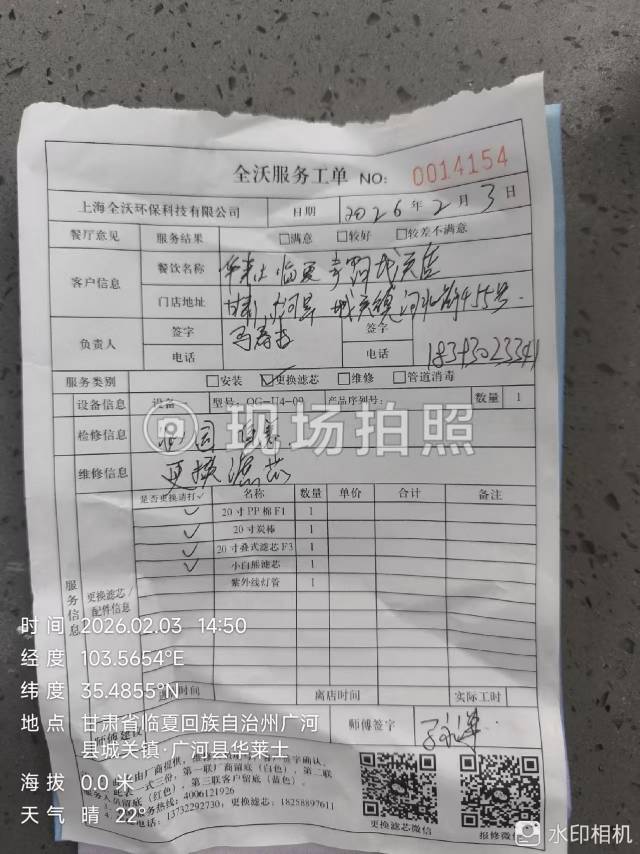 全沃服务工单 NO: 0014154
上海全沃环保科技有限公司 日期 2026年2月3日
餐厅意见 服务结果 □满意 □较好 □较差不满意
客户信息 餐饮名称 华莱士临夏
门店地址 甘肃 广河县 城关镇河北新455号
负责人 签字 签字
电话 电话
服务类别 □安装 ☑更换滤芯 □维修 □管道消毒
设备信息 设备 型号: QG-U4-09 产品序列号: 数量 1
检修信息
现场拍照
维修信息 更换滤芯
服务信息 更换滤芯/配件信息
是否更换请打✓ 名称 数量 单价 合计 备注
✓ 20寸PP棉F1 1
✓ 20寸炭棒 1
✓ 20寸叠式滤芯F3 1
✓ 小白熊滤芯 1
紫外线灯管 1
时间 离店时间 实际工时
师傅签字
时间 2026.02.03 14:50
经度 103.5654°E
纬度 35.4855°N
地点 甘肃省临夏回族自治州广河县城关镇·广河县华莱士
海拔 0.0米
天气 晴 22°
一式三份, 第一联厂商留底(白色), 第二联
(红色), 第三联客户留底(蓝色),
服务热线: 4006121926
电话: 13732292730; 更换滤芯: 18258897611
更换滤芯微信 报修微信
水印相机